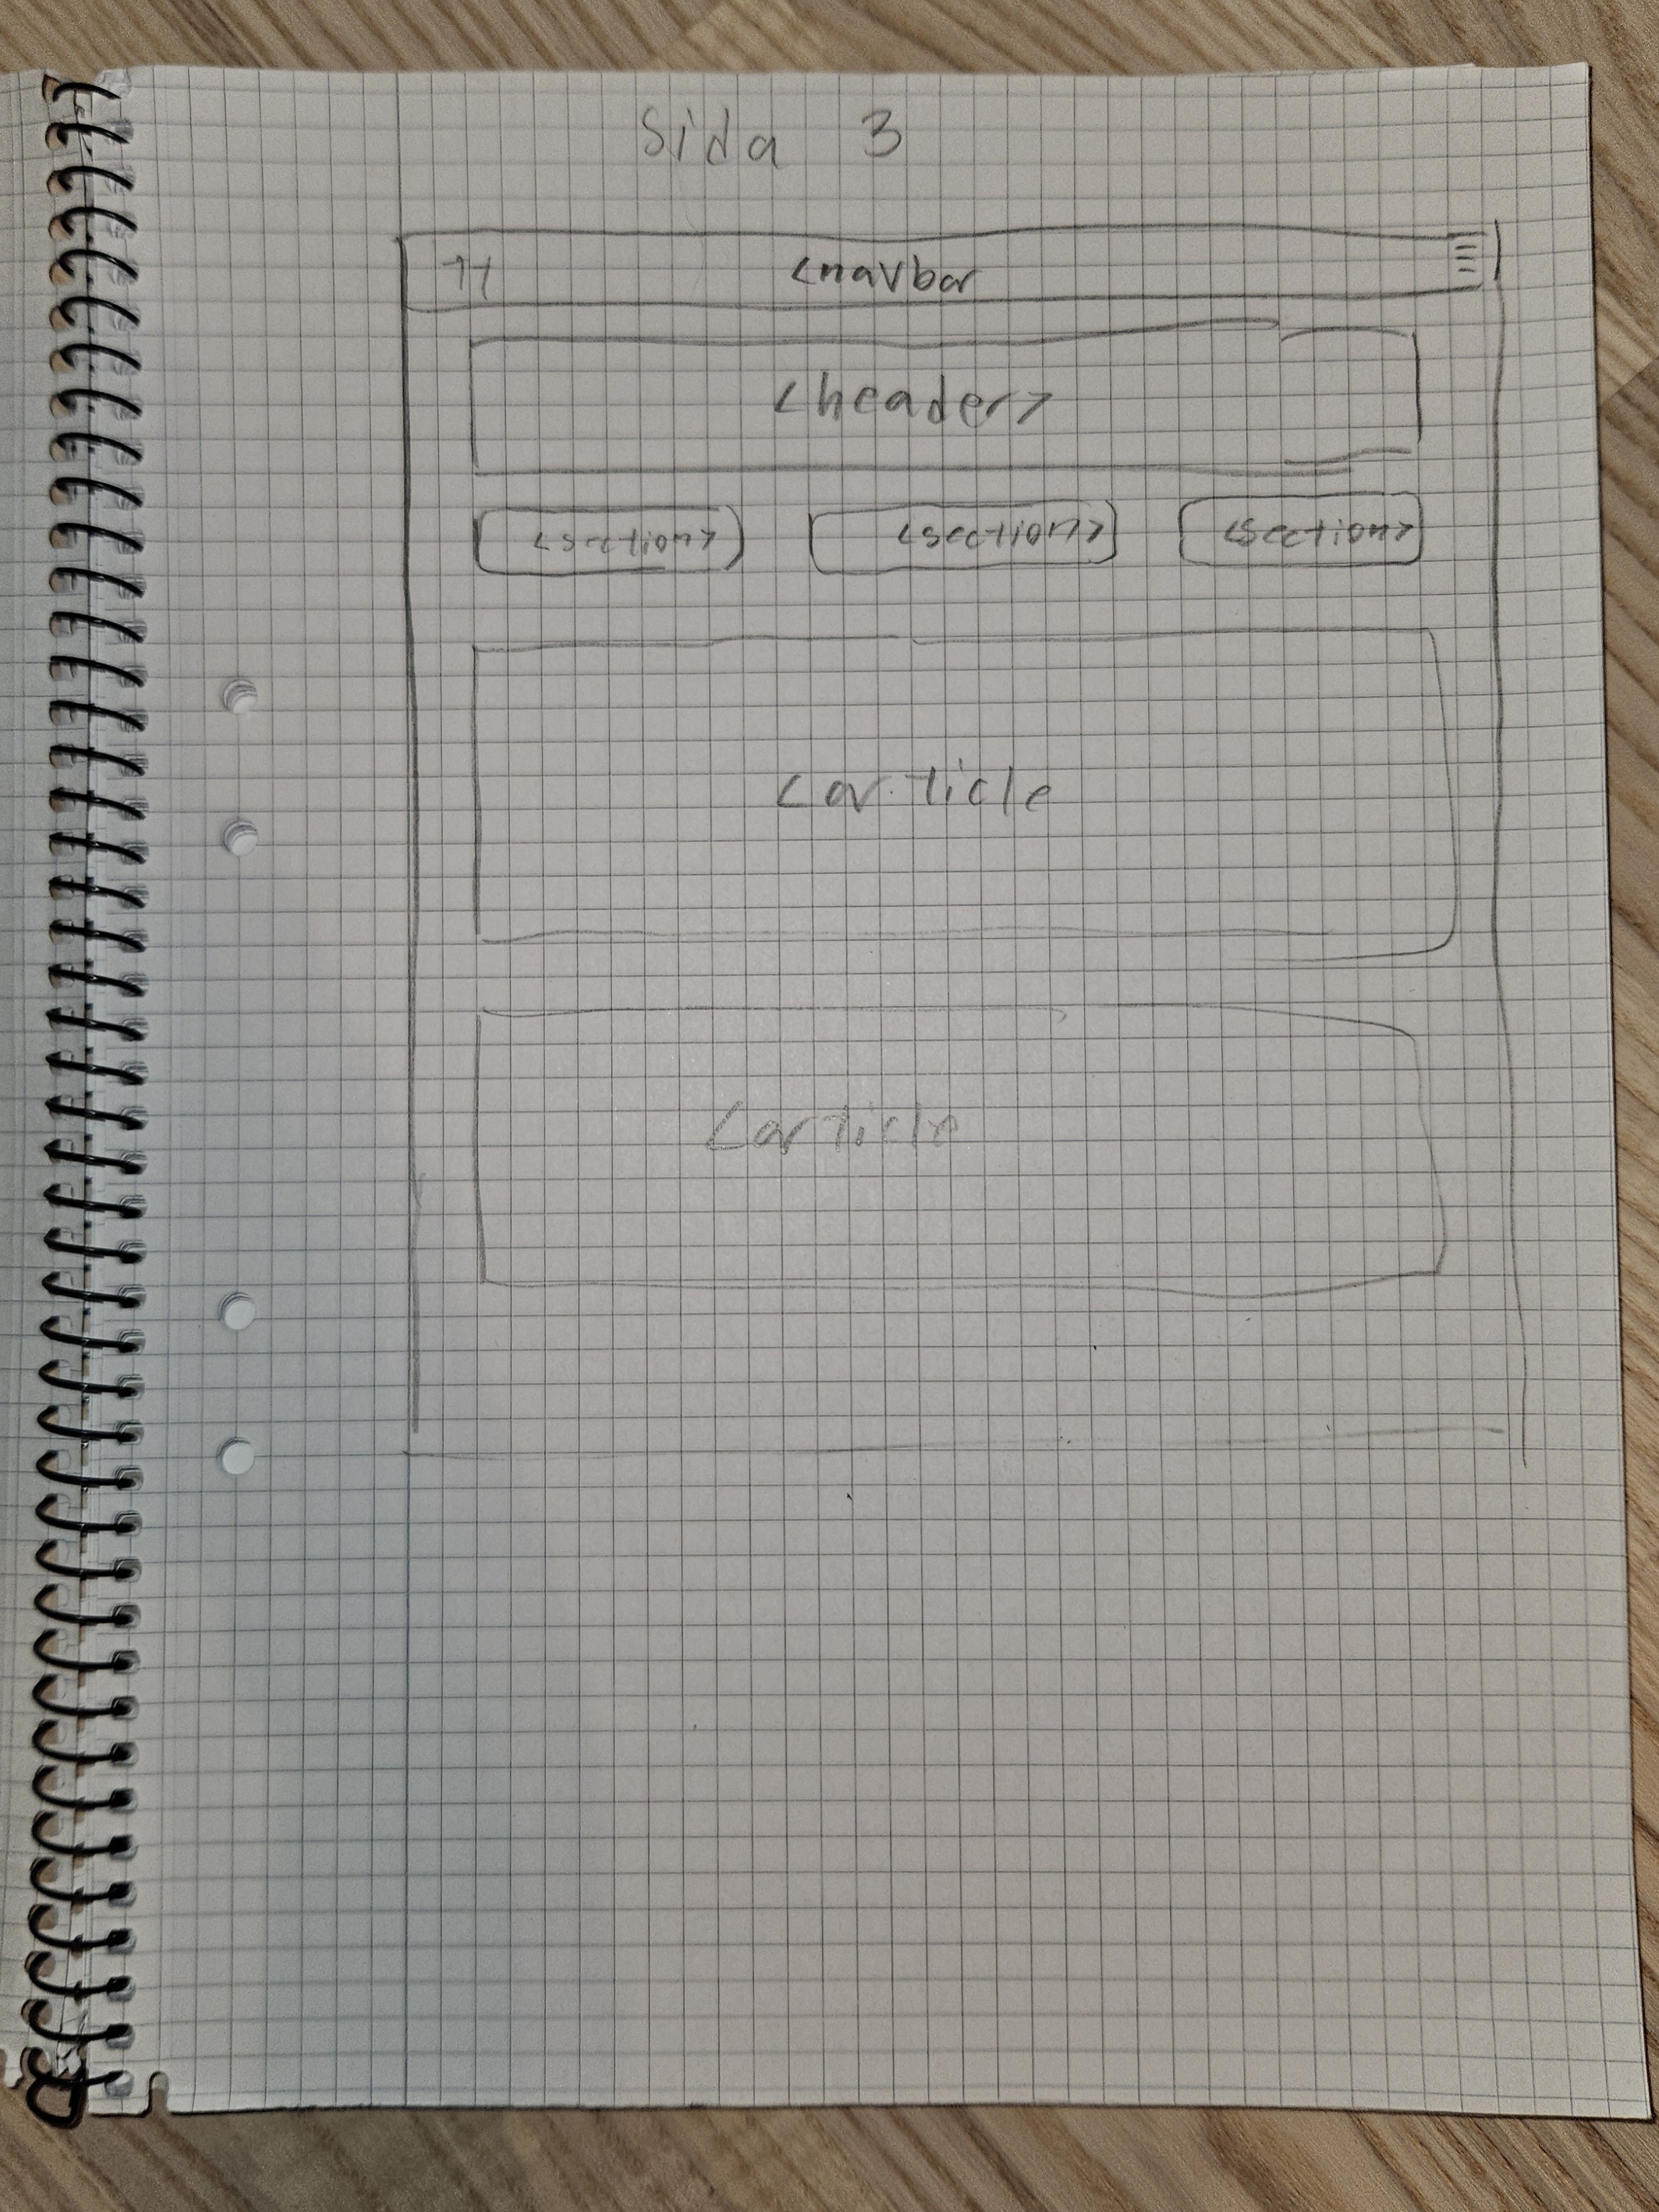 Sida 3
<navbar
<header>
<section> <section> <section>
<article
<article